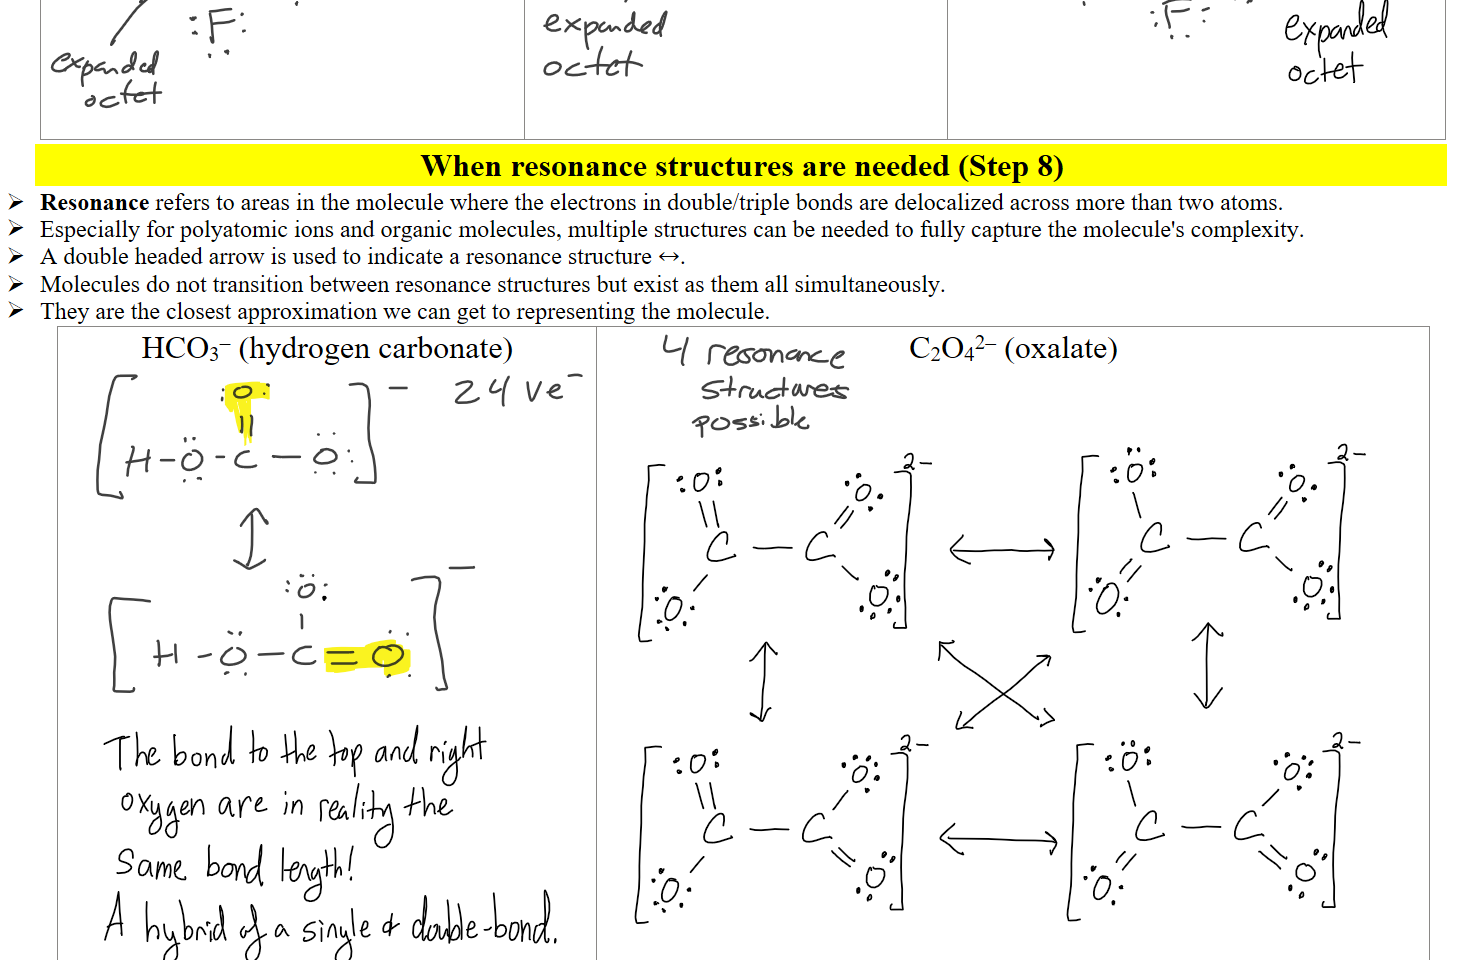 :F:
expanded
octet
expanded
octet
:F:
expanded
octet
When resonance structures are needed (Step 8)
➢ Resonance refers to areas in the molecule where the electrons in double/triple bonds are delocalized across more than two atoms.
➢ Especially for polyatomic ions and organic molecules, multiple structures can be needed to fully capture the molecule's complexity.
➢ A double headed arrow is used to indicate a resonance structure ↔.
➢ Molecules do not transition between resonance structures but exist as them all simultaneously.
➢ They are the closest approximation we can get to representing the molecule.
HCO₃⁻ (hydrogen carbonate)
24 ve⁻
O
||
H-O-C-O
−
O
|
H-O-C=O
−
The bond to the top and right
oxygen are in reality the
same bond length!
A hybrid of a single & double-bond.
4 resonance
structures
possible
C₂O₄²⁻ (oxalate)
2−
O O
C — C
O O
2−
O O
C — C
O O
2−
O O
C — C
O O
2−
O O
C — C
O O